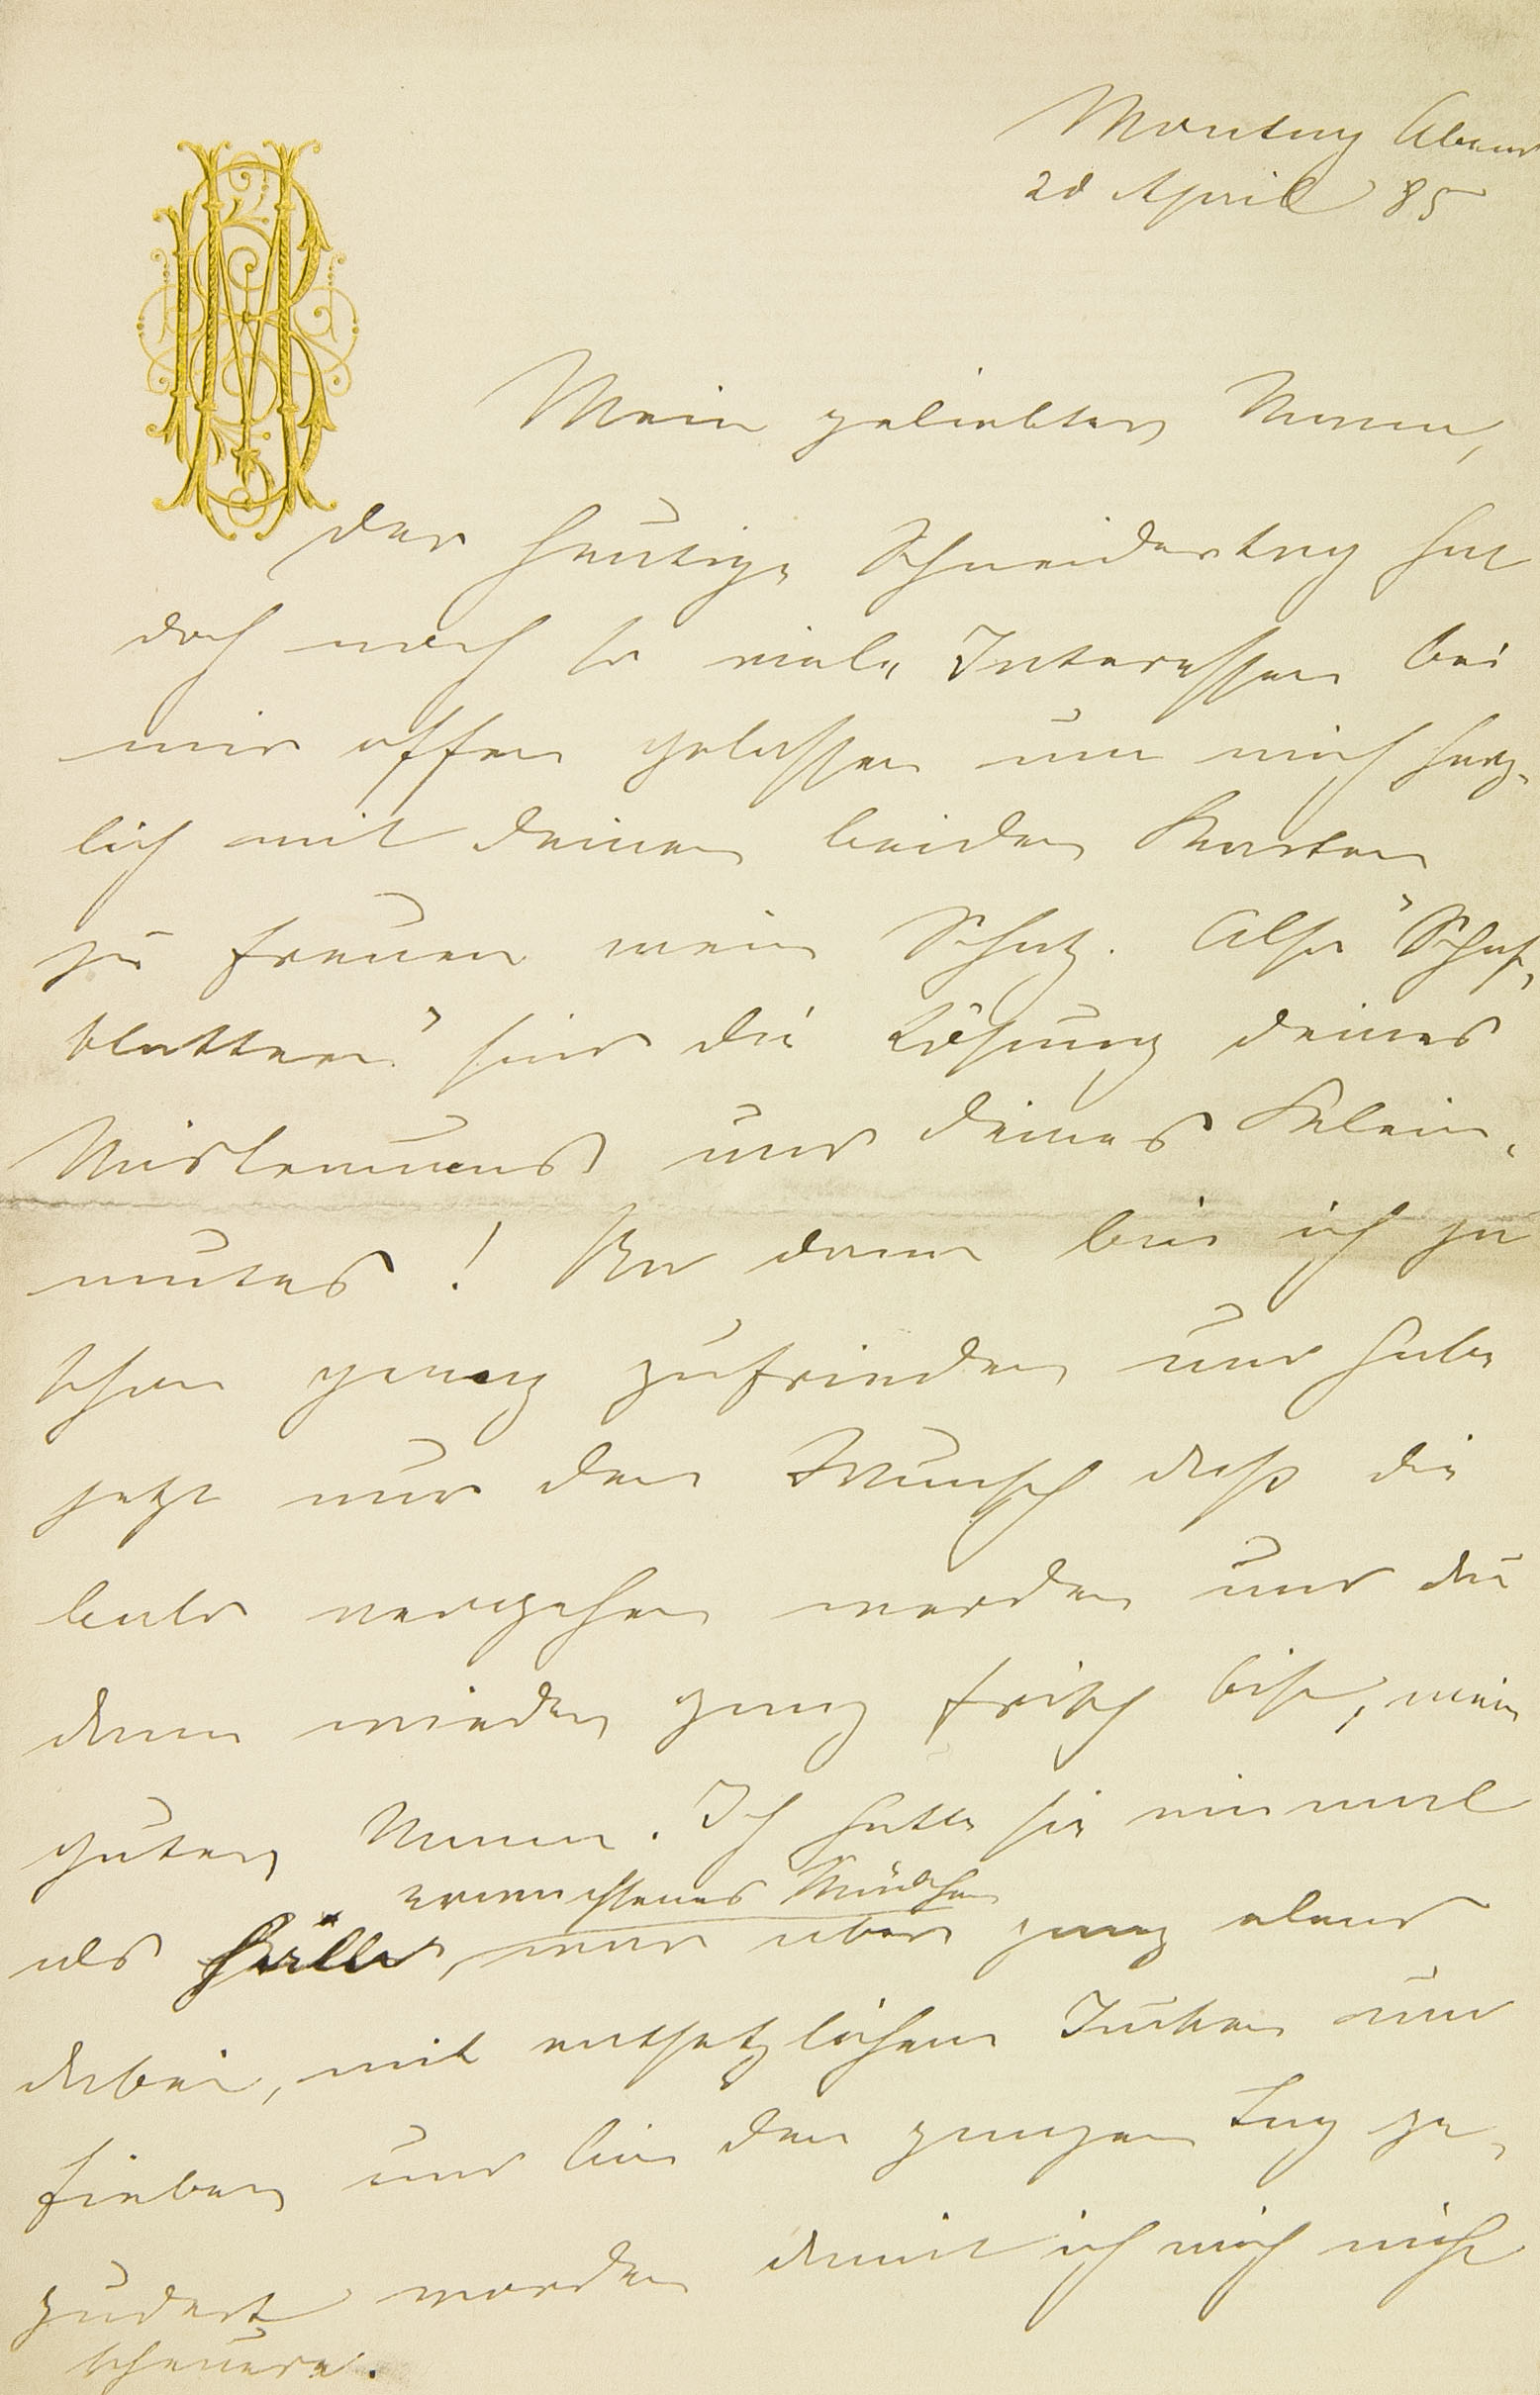 Montag Abend
20 April 85
Mein geliebter Mann,
der heutige Schneidertag hat
doch noch so viele Interessen bei
mir offen gelassen um mich herz-
lich mit deinen beiden Karten
zu freuen mein Schatz. Also "Schaf-
blattern" sind die Lösung deines
Mistrauens und deines Klein-
mutes! Na dann bin ich ja
schon ganz zufrieden und habe
jetzt nur den Wunsch daß die
bald vergehen werden und du
dann wieder ganz frisch bist, mein
guter Mann. Ich hatte sie einmal
erwachsenes Mädchen
als war aber ganz elend
dabei, mit entsetzlichem Jucken und
Fieber und bin den ganzen Tag ge-
pudert worden damit ich mich nicht
scheuere.